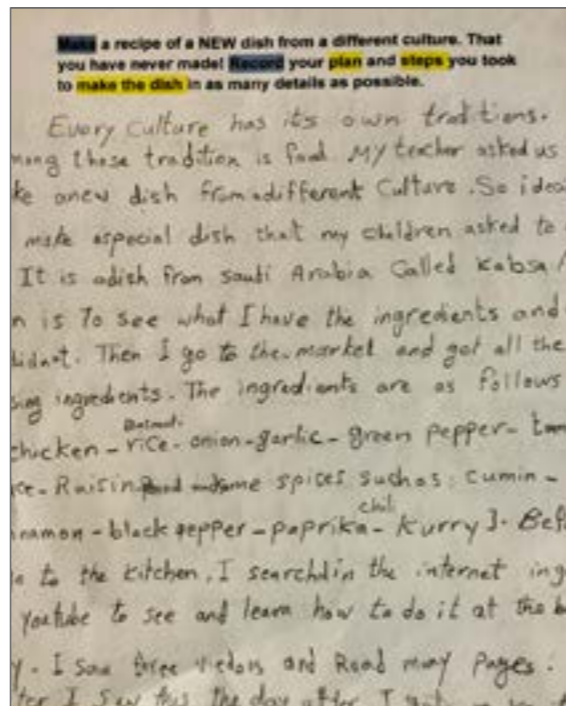 Make a recipe of a NEW dish from a different culture. That
you have never made! Record your plan and steps you took
to make the dish in as many details as possible.
Every culture has its own traditions.
mong those tradition is food My teacher asked us
ke anew dish fromadifferent Culture. So ideci
make aspecial dish that my children asked to
It is adish from saudi Arabia Called Kabsa
n is To see what I have the ingredients and
didnot. Then I go to the market and got all the
sing ingredients. The ingredients are as follows
chicken - Basmati rice - onion - garlic - green pepper - tom
ce - Raisin some spices suchas: cumin -
namon - black pepper - paprika - chili Kurry }. Bef
to the kitchen, I searchdin the internet
youtube to see and learn how to do it at the b
y. I saw three vedors and Read many pages.
ter I saw this the day after I